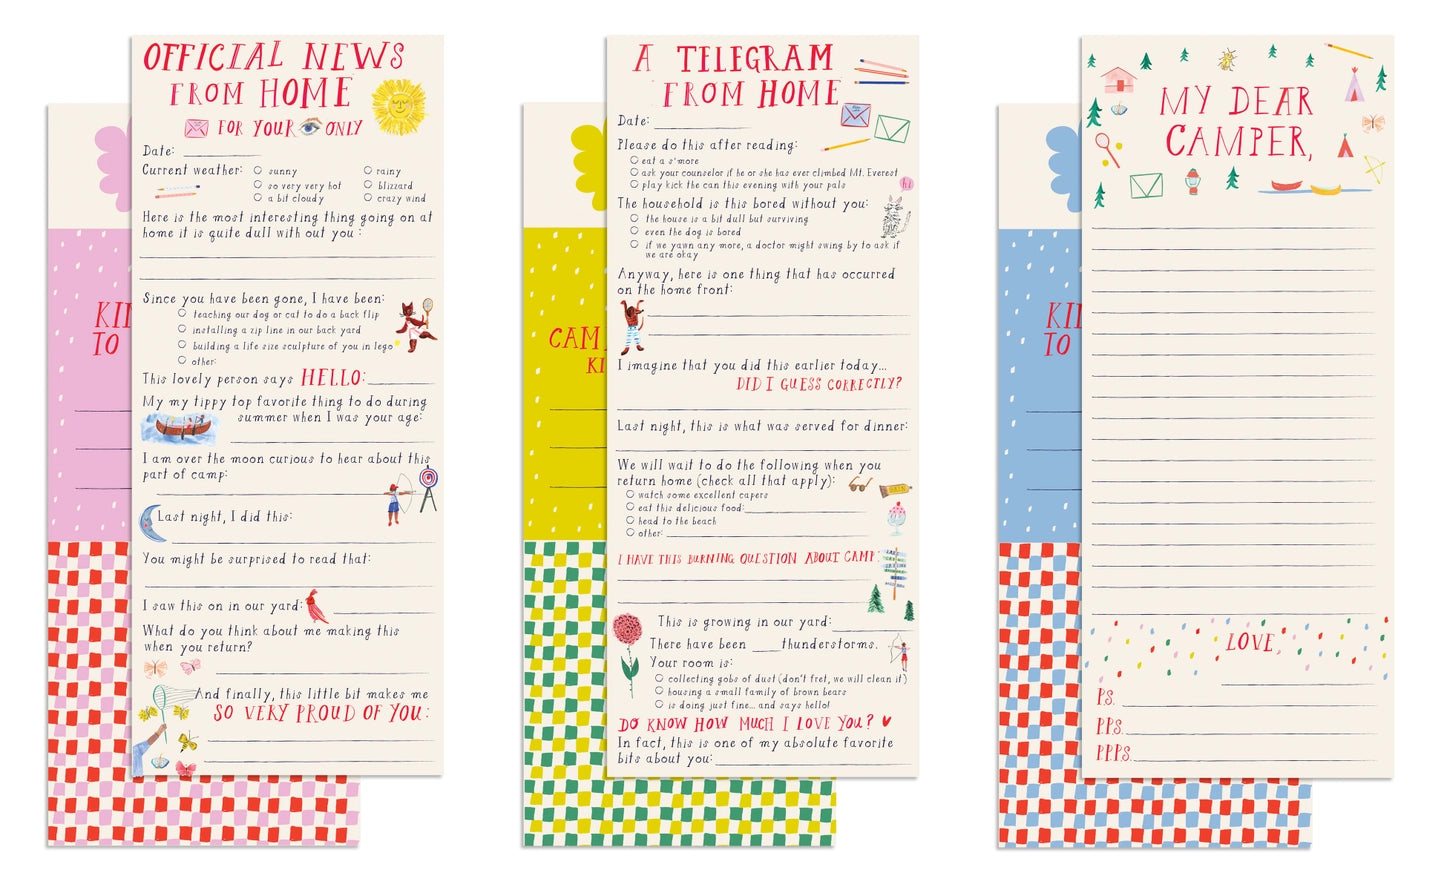 OFFICIAL NEWS
FROM HOME
FOR YOUR ONLY
Date:
Current weather:
sunny
so very very hot
a bit cloudy
rainy
blizzard
crazy wind
Here is the most interesting thing going on at
home it is quite dull with out you :
Since you have been gone, I have been:
teaching our dog or cat to do a back flip
installing a zip line in our back yard
building a life size sculpture of you in lego
other:
This lovely person says HELLO:
My my tippy top favorite thing to do during
summer when I was your age:
I am over the moon curious to hear about this
part of camp:
Last night, I did this:
You might be surprised to read that:
I saw this on in our yard:
What do you think about me making this
when you return?
And finally, this little bit makes me
SO VERY PROUD OF YOU:
KI
TO
A TELEGRAM
FROM HOME
Date:
Please do this after reading:
eat a s'more
ask your counselor if he or she has ever climbed Mt. Everest
play kick the can this evening with your pals
hi
The household is this bored without you:
the house is a bit dull but surviving
even the dog is bored
if we yawn any more, a doctor might swing by to ask if
we are okay
Anyway, here is one thing that has occurred
on the home front:
I imagine that you did this earlier today...
DID I GUESS CORRECTLY?
Last night, this is what was served for dinner:
We will wait to do the following when you
return home (check all that apply):
watch some excellent capers
eat this delicious food:
head to the beach
other:
I HAVE THIS BURNING QUESTION ABOUT CAMP:
This is growing in our yard:
There have been thunderstorms.
Your room is:
collecting gobs of dust (don't fret, we will clean it)
housing a small family of brown bears
is doing just fine... and says hello!
DO KNOW HOW MUCH I LOVE YOU?
In fact, this is one of my absolute favorite
bits about you:
CAM
KI
MY DEAR
CAMPER,
LOVE,
P.S.
P.P.S.
P.P.P.S.
KI
TO